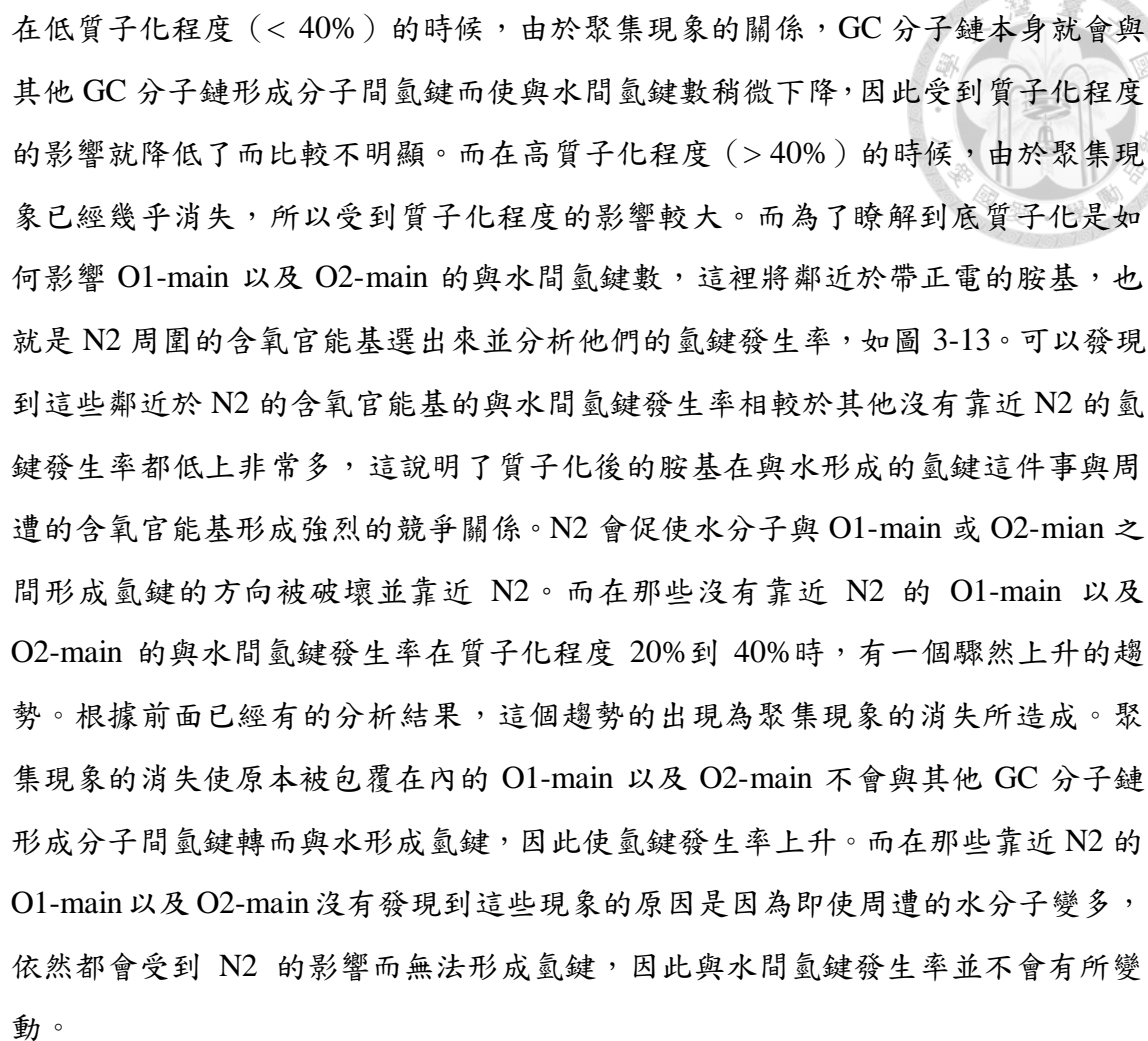 在低質子化程度（< 40%）的時候，由於聚集現象的關係，GC 分子鏈本身就會與
其他 GC 分子鏈形成分子間氫鍵而使與水間氫鍵數稍微下降，因此受到質子化程度
的影響就降低了而比較不明顯。而在高質子化程度（> 40%）的時候，由於聚集現
象已經幾乎消失，所以受到質子化程度的影響較大。而為了瞭解到底質子化是如
何影響 O1-main 以及 O2-main 的與水間氫鍵數，這裡將鄰近於帶正電的胺基，也
就是 N2 周圍的含氧官能基選出來並分析他們的氫鍵發生率，如圖 3-13。可以發現
到這些鄰近於 N2 的含氧官能基的與水間氫鍵發生率相較於其他沒有靠近 N2 的氫
鍵發生率都低上非常多，這說明了質子化後的胺基在與水形成的氫鍵這件事與周
遭的含氧官能基形成強烈的競爭關係。N2 會促使水分子與 O1-main 或 O2-mian 之
間形成氫鍵的方向被破壞並靠近 N2。而在那些沒有靠近 N2 的 O1-main 以及
O2-main 的與水間氫鍵發生率在質子化程度 20%到 40%時，有一個驟然上升的趨
勢。根據前面已經有的分析結果，這個趨勢的出現為聚集現象的消失所造成。聚
集現象的消失使原本被包覆在內的 O1-main 以及 O2-main 不會與其他 GC 分子鏈
形成分子間氫鍵轉而與水形成氫鍵，因此使氫鍵發生率上升。而在那些靠近 N2 的
O1-main 以及 O2-main 沒有發現到這些現象的原因是因為即使周遭的水分子變多，
依然都會受到 N2 的影響而無法形成氫鍵，因此與水間氫鍵發生率並不會有所變
動。